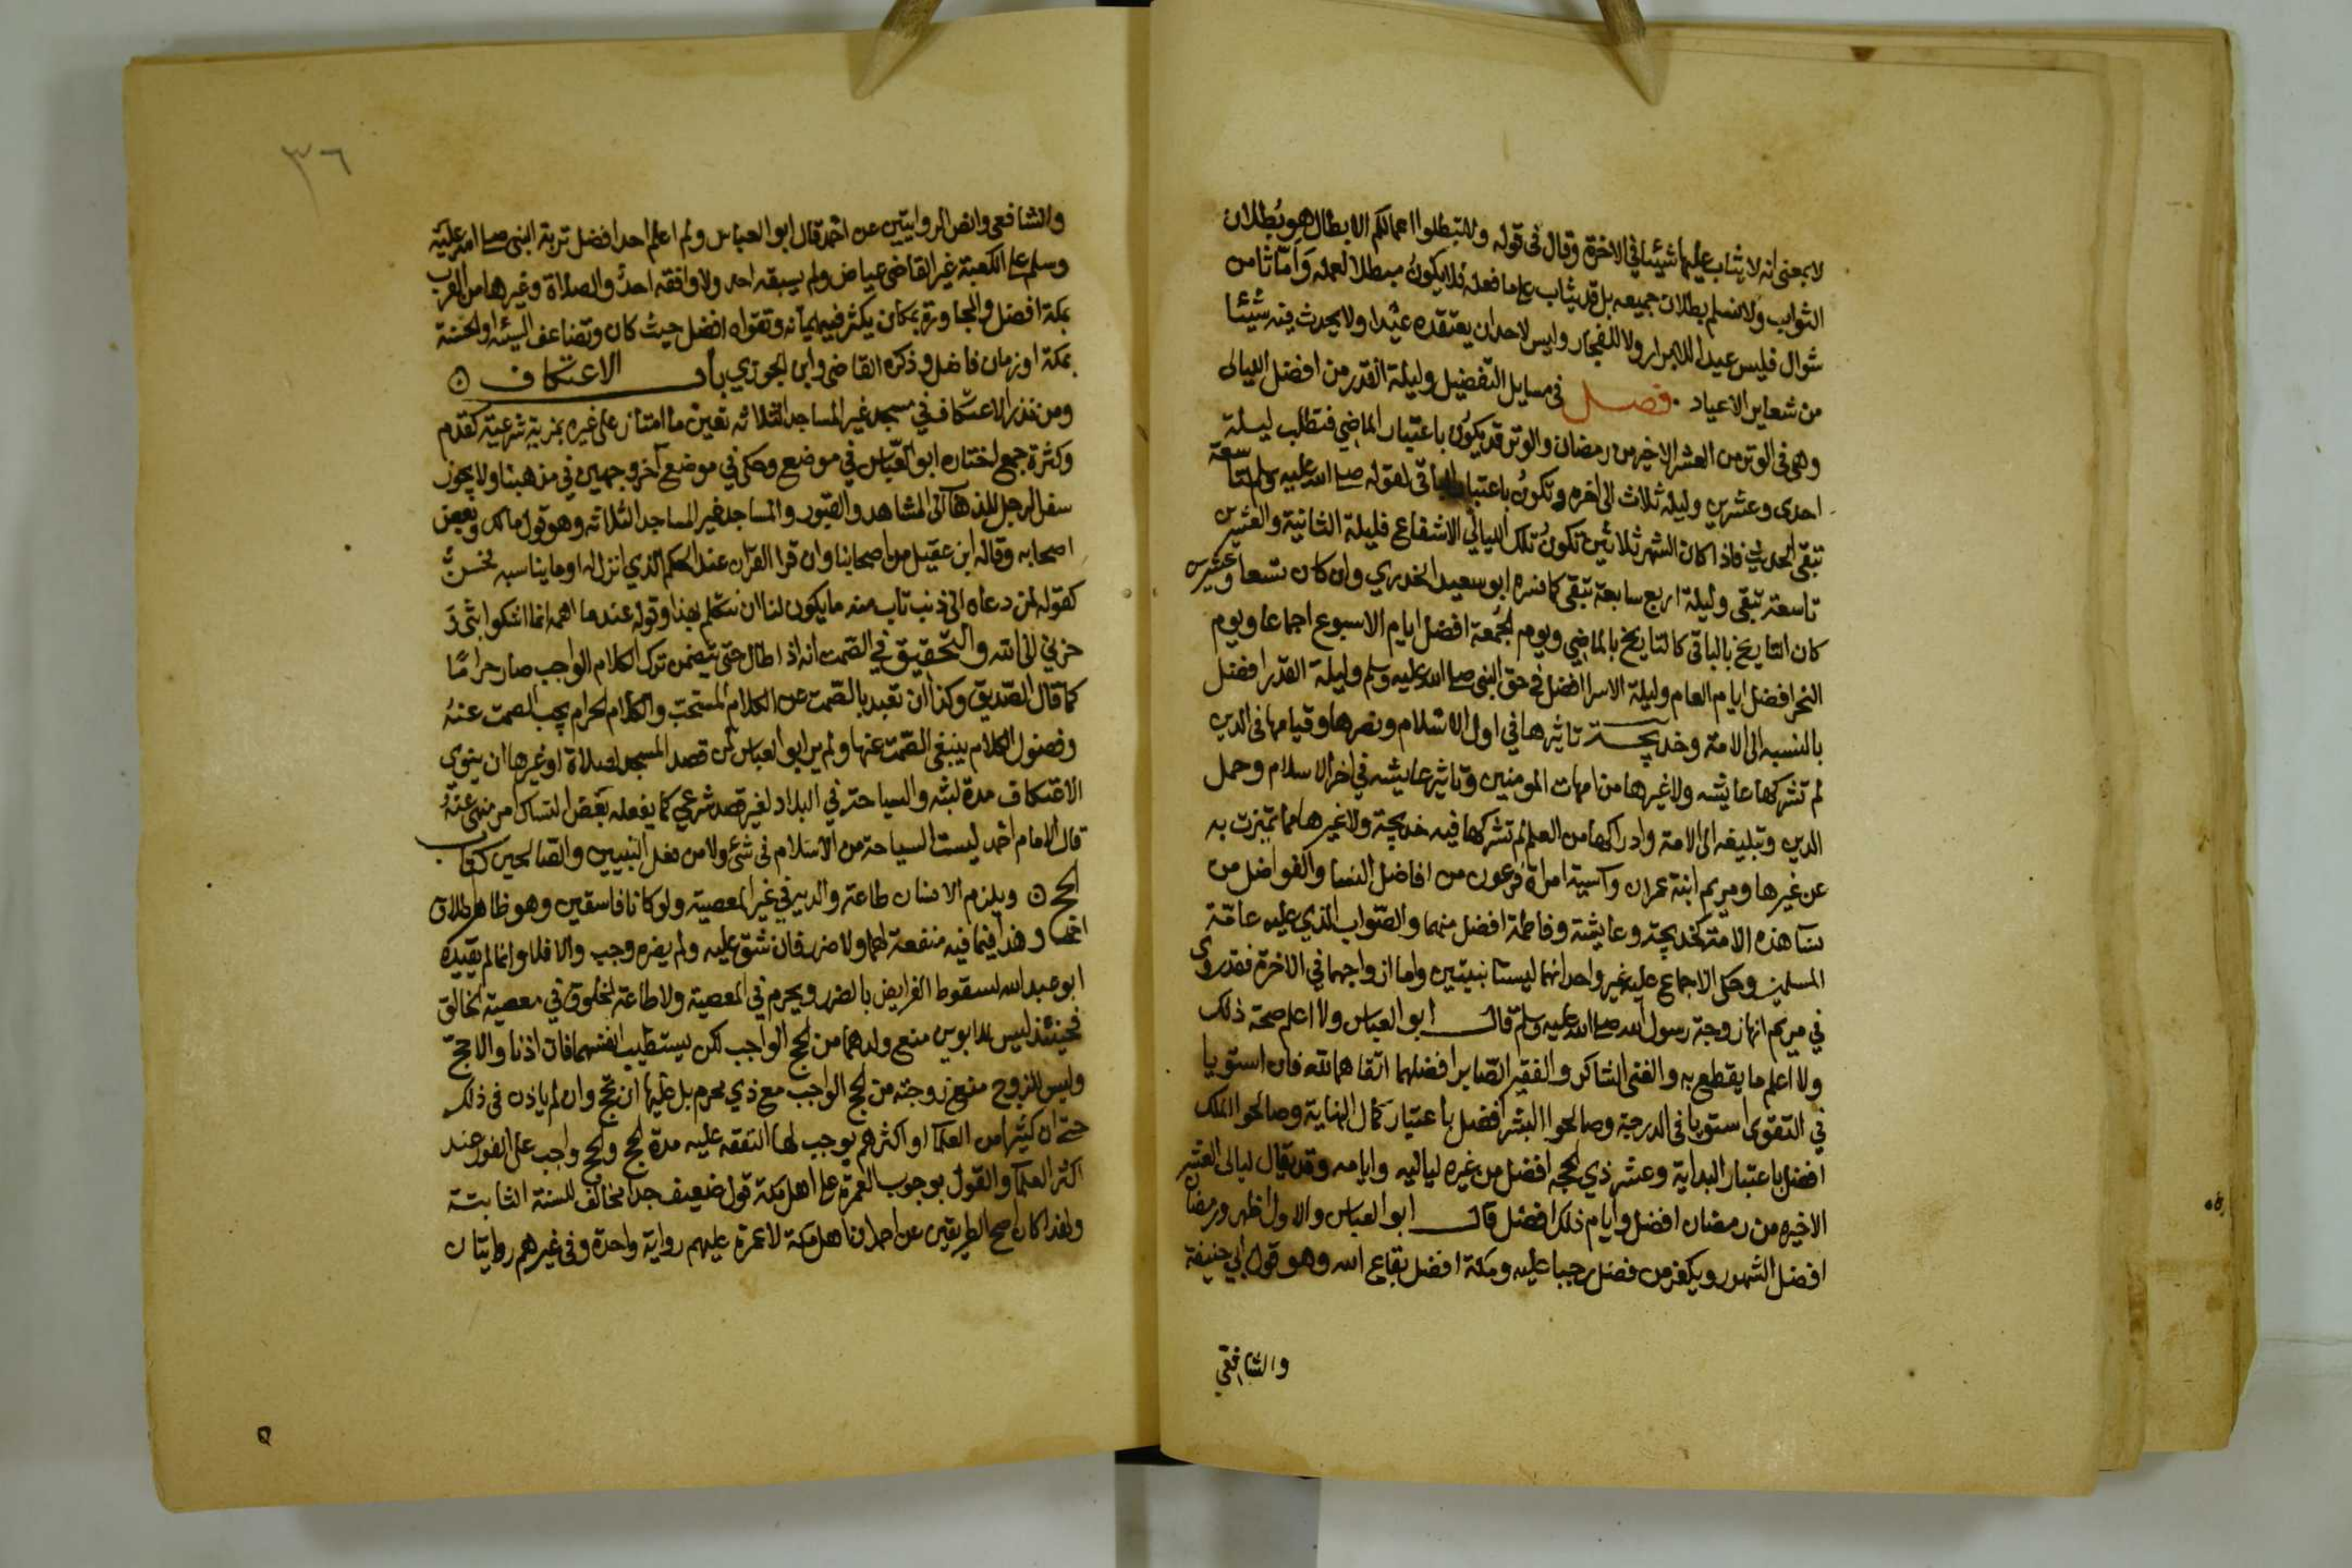 لا بمعنى انه لا يثاب عليها شيئا في الاخرة وقال في قوله ولا تبطلوا اعمالكم الابطال هو بطلان
الثواب ولا نسلم بطلان جميعه بل قد يثاب على ما فعله فلا يكون مبطلا لعمله واما ثامن
شوال فليس عيدا لا للابرار ولا للفجار وليس لاحد ان يعتقده عيدا ولا يحدث فيه شيئا
من شعاير الاعياد . فصل في مسايل التفضيل وليلة القدر من افضل الليالى
وهى فى الوتر من العشر الاخير من رمضان والوتر قد يكون باعتبار الماضي فتطلب ليلة
احدى وعشرين وليلة ثلاث الى اخره وتكون باعتبار الباقي لقوله صلى الله عليه وسلم لتاسعة
تبقى الحديث فاذا كان الشهر ثلاثين تكون تلك الليالي الاشفاع فليلة الثانية والعشرين
تاسعة تبقى وليلة اربع سابعة تبقى كما فسره ابو سعيد الخدري وان كان تسعا وعشرين
كان التاريخ بالباقي كالتاريخ بالماضي ويوم الجمعة افضل ايام الاسبوع اجماعا ويوم
النحر افضل ايام العام وليلة الاسرا افضل في حق النبي صلى الله عليه وسلم وليلة القدر افضل
بالنسبه الى الامة وخديجة تاثيرها في اول الاسلام ونصرها وقيامها فى الدين
لم تشركها عايشه ولا غيرها من امهات المومنين وتاثير عايشه في اخر الاسلام وحمل
الدين وتبليغه الى الامة وادراكها من العلم لم تشركها فيه خديجة ولا غيرها مما تميزت به
عن غيرها ومريم ابنة عمران وآسية امراة فرعون من افاضل النسا والفواضل من
نسآ هذه الامة كخديجة وعايشة وفاطمة افضل منهما والصواب الذي عليه عامة
المسلمين وحكى الاجماع عليه غير واحد انهما ليستا نبيتين واما ازواجهما في الاخرة فقد روى
في مريم انها زوجة رسول الله صلى الله عليه وسلم قال ابو العباس ولا اعلم صحة ذلك
ولا اعلم ما يقطع به والغنى الشاكر والفقير الصابر افضلهما اتقاهما لله فان استويا
في التقوى استويا فى الدرجة وصالحوا البشر افضل باعتبار كمال النهاية وصالحوا الملك
افضل باعتبار البداية وعشر ذي الحجه افضل من غيره لياليه وايامه وقد يقال ليالى العشر
الاخيره من رمضان افضل وايام ذلك افضل قال ابو العباس والاول اظهر ورمضان
افضل الشهور ويكفر من فضل رجبا عليه ومكة افضل بقاع الله وهو قول ابي حنيفة
والشافعي
٣٦
والشافعى وانص الروايتين عن احمد قال ابو العباس ولم اعلم احدا فضل تربة النبى صلى الله عليه
وسلم على الكعبة غير القاضى عياض ولم يسبقه احد ولا وافقه احد والصلاة وغيرها من القرب
بمكة افضل والمجاورة بمكان يكثر فيه ايمانه وتقواه افضل حيث كان وتضاعف السيئه او الحسنة
بمكة او زمان فاضل و ذكره القاضى وابن الجوزي باب الاعتكاف
ومن نذر الاعتكاف في مسجد غير المساجد الثلاثه تعين ما امتاز على غيره بمزية شرعية كقدم
وكثرة جمع اختاره ابو العباس في موضع وحكى في موضع آخر وجهين في مذهبنا ولا يجوز
سفر الرجل للذهاب الى المشاهد والقبور والمساجد غير المساجد الثلاثه وهو قول مالك وبعض
اصحابه وقاله ابن عقيل من اصحابنا وان قرا القرآن عند الحكم الذي انزل له او ما يناسبه فحسن
كقوله لمن دعاه الى ذنب تاب منه ما يكون لنا ان نتكلم بهذا وقوله عند ما اهمه انما اشكوا بثى و
حزني الى الله والتحقيق في الصمت انه اذا طال حتى يتضمن ترك الكلام الواجب صار حراما
كما قال الصديق وكذا ان تعبد بالصمت عن الكلام المستحب والكلام الحرام يجب الصمت عنه
وفضول الكلام ينبغى الصمت عنها ولم ير ابو العباس لمن قصد المسجد لصلاة او غيرها ان ينوى
الاعتكاف مدة لبثه والسياحة في البلاد لغير قصد شرعي كما يفعله بعض النساك امر منهى عنه
قال الامام احمد ليست السياحة من الاسلام فى شئ ولا من فعل النبيين والصالحين كتاب
الحج ويلزم الانسان طاعة والديه في غير المعصية ولو كانا فاسقين وهو ظاهر اطلاق
احمد وهذا فيما فيه منفعة لهما ولا ضرر فان شق عليه ولم يضره وجب والا فلا وانما لم يقيده
ابو عبد الله لسقوط الفرايض بالضرر ويحرم في المعصية ولا طاعة لمخلوق في معصية الخالق
فحينئذ ليس للابوين منع ولدهما من الحج الواجب لكن يستطيب انفسهما فان اذنا والا حج
وليس للزوج منع زوجته من الحج الواجب مع ذي محرم بل عليها ان تحج وان لم ياذن فى ذلك
حتى ان كثيرا من العلما او اكثرهم يوجب لها النفقه عليه مدة الحج والحج واجب على الفور عند
اكثر العلماء والقول بوجوب العمرة على اهل مكة قول ضعيف جدا مخالف للسنة الثابتة
ولهذا كان اصح الطريقين عن احمد ان اهل مكة لا عمرة عليهم رواية واحدة وفى غيرهم روايتان